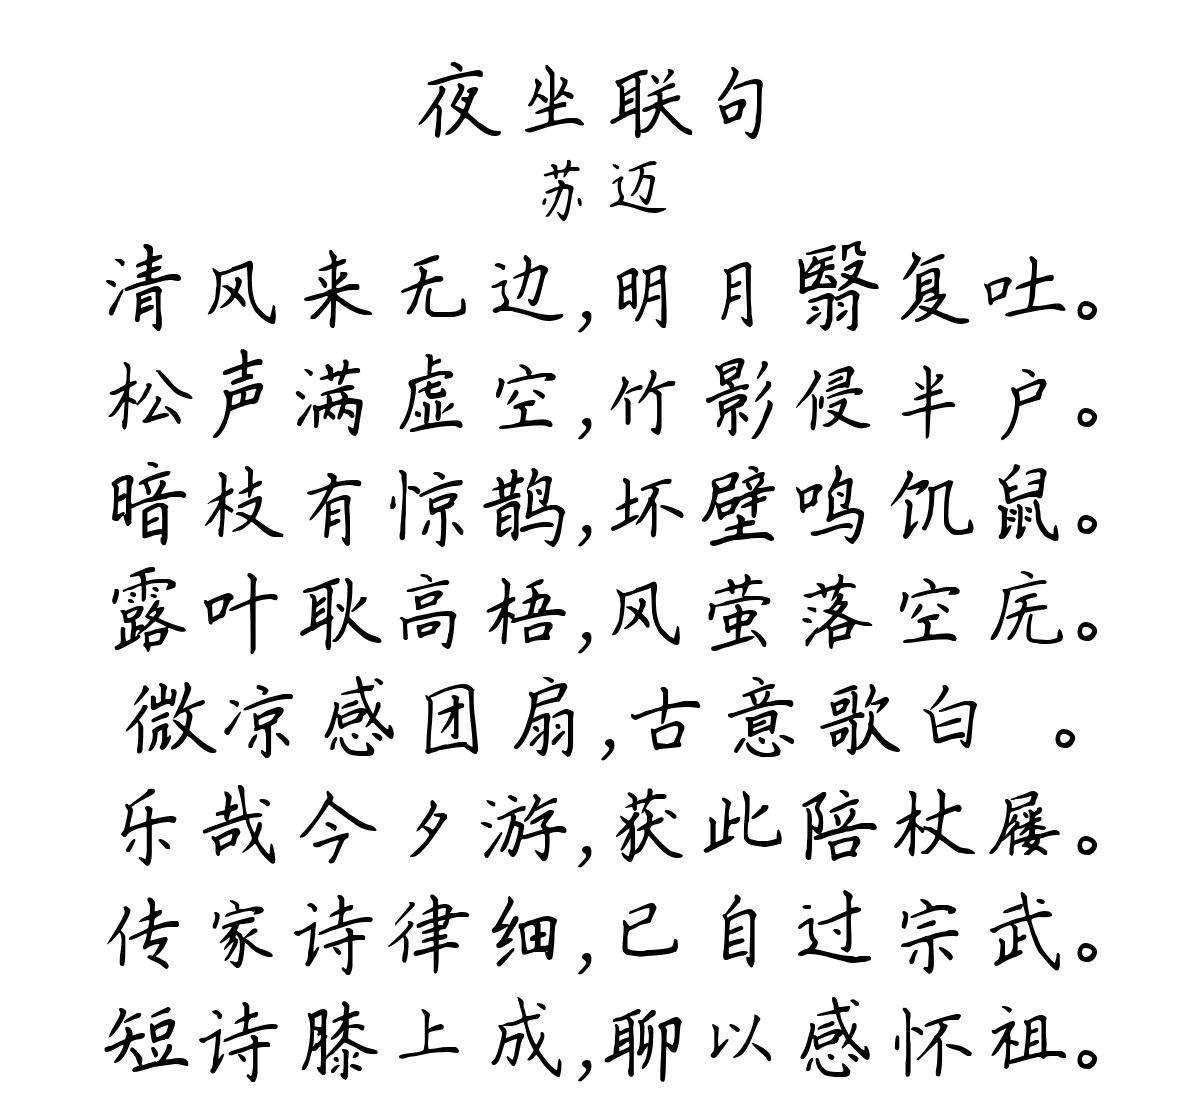 夜坐联句
苏迈
清风来无边,明月翳复吐。
松声满虚空,竹影侵半户。
暗枝有惊鹊,坏壁鸣饥鼠。
露叶耿高梧,风萤落空庑。
微凉感团扇,古意歌白 。
乐哉今夕游,获此陪杖屦。
传家诗律细,已自过宗武。
短诗膝上成,聊以感怀祖。